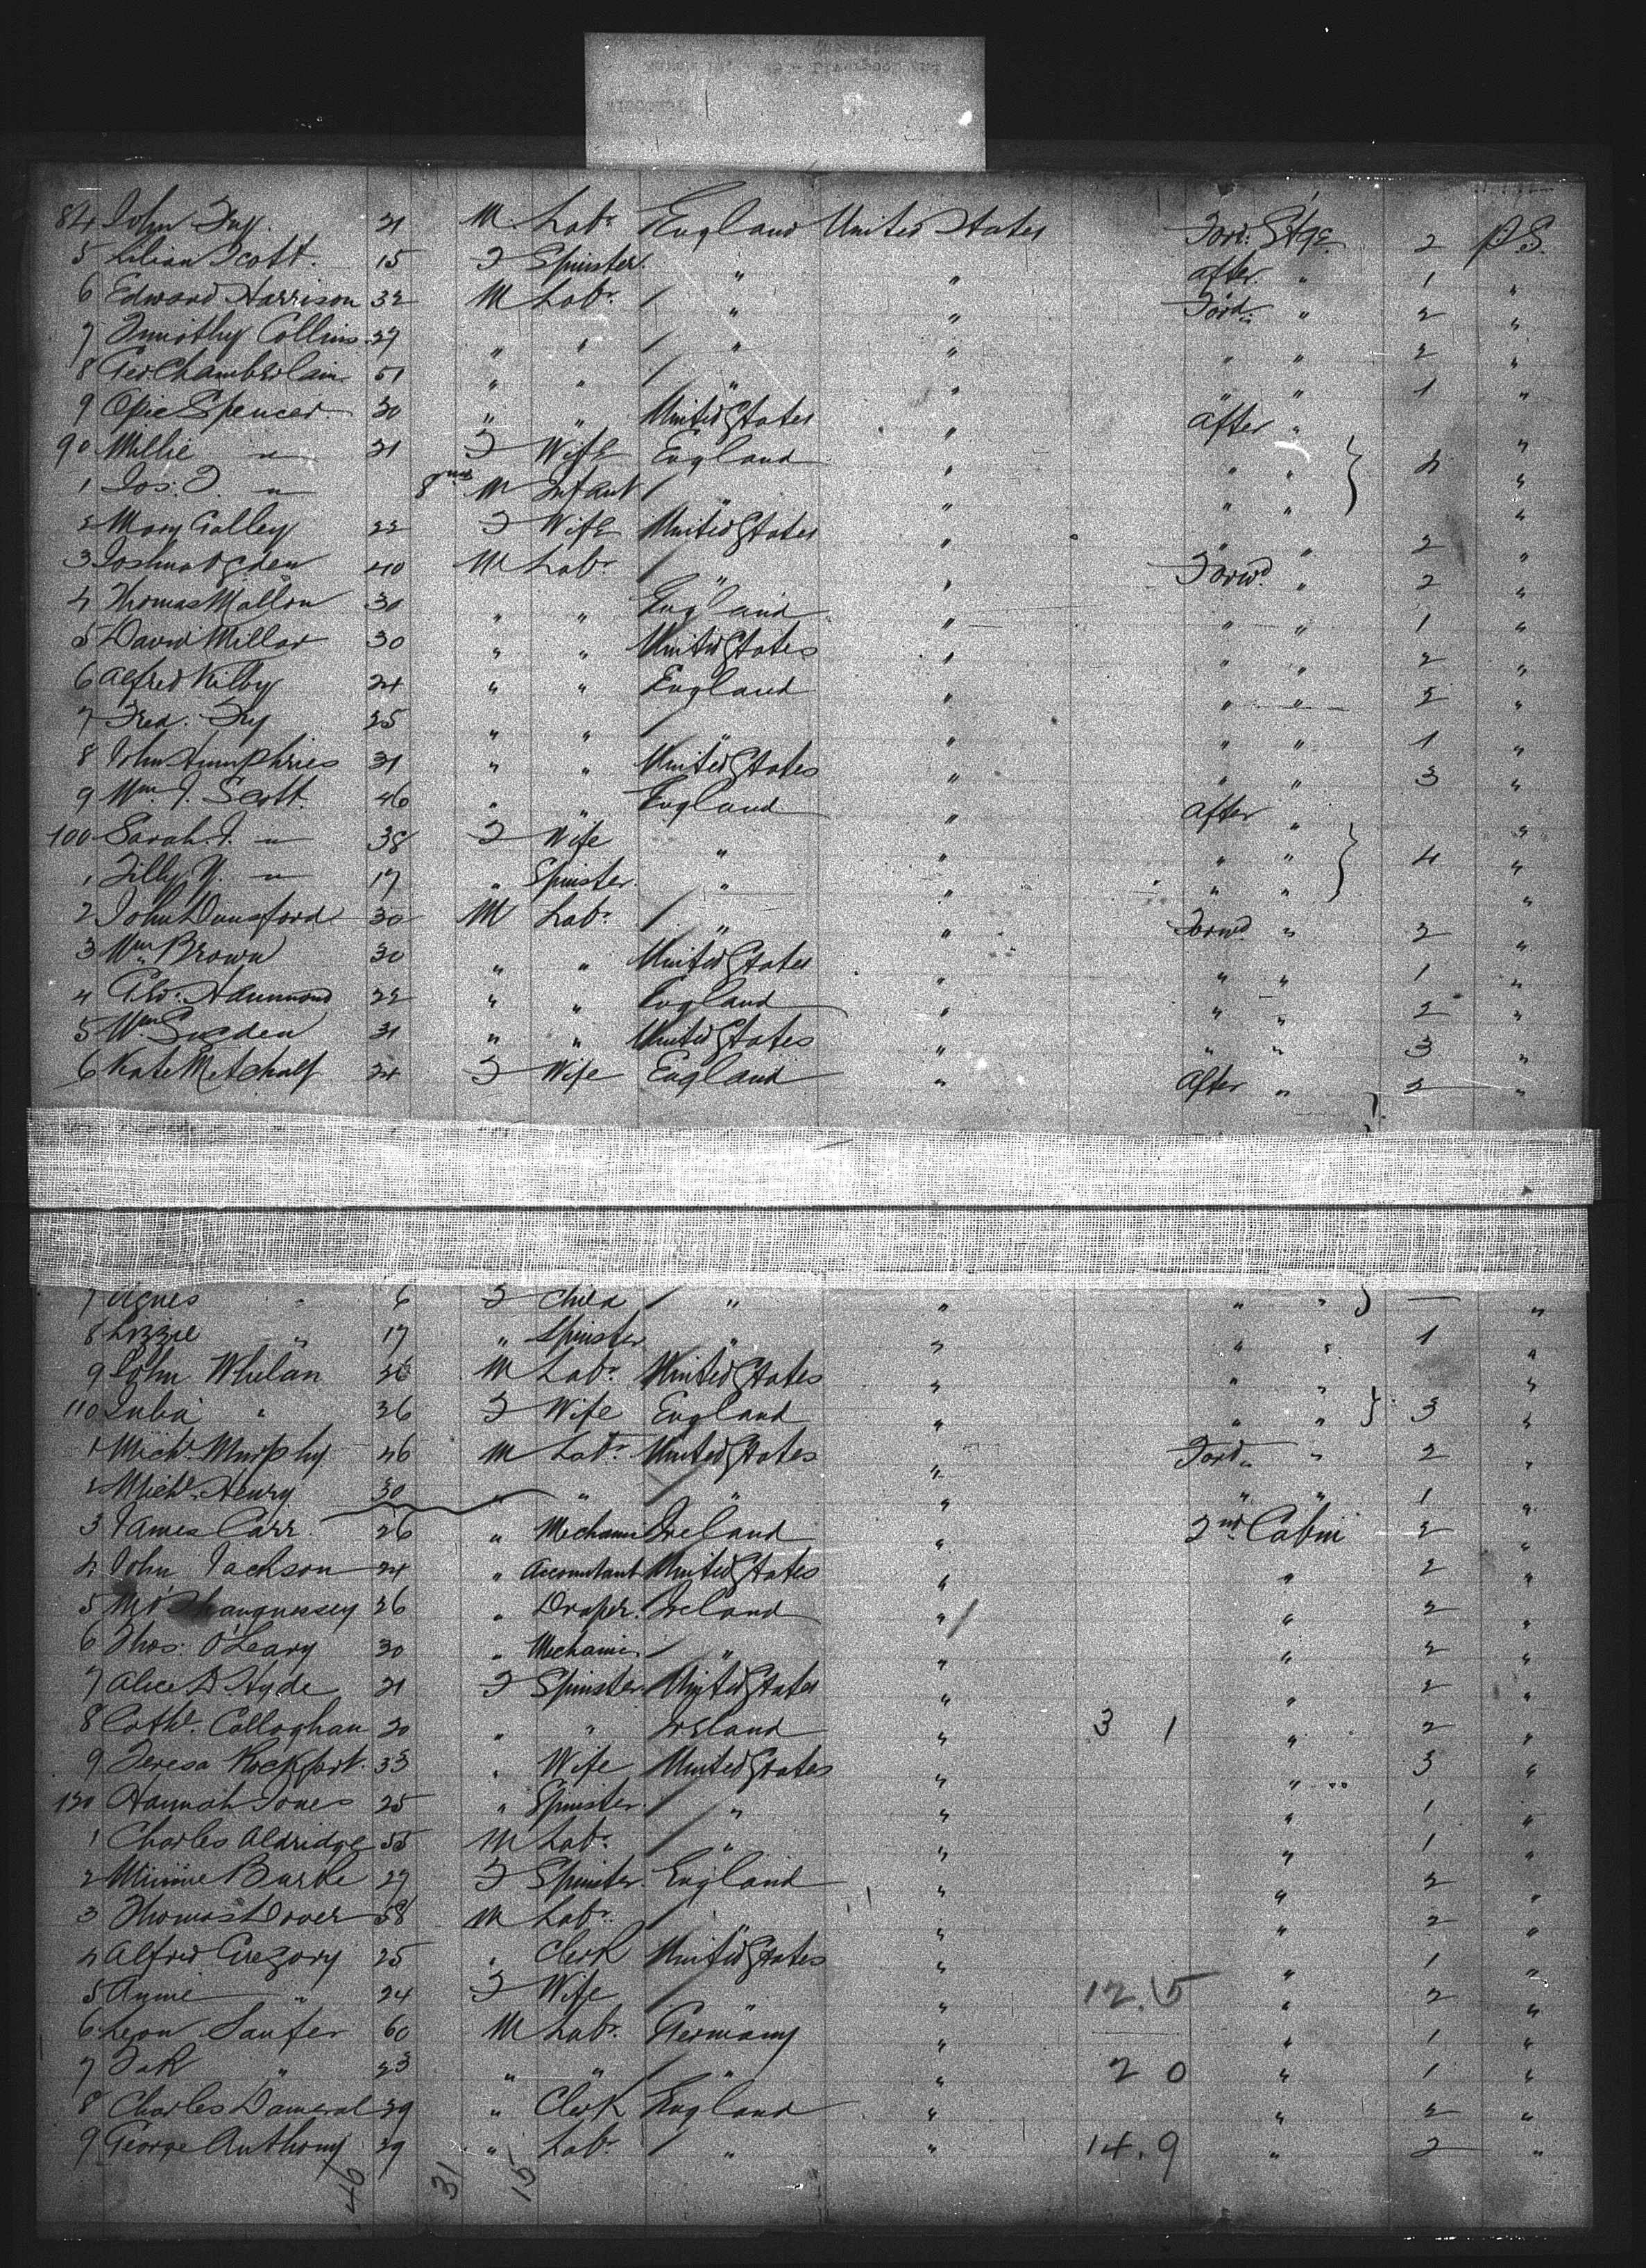 84 John Fry. 21 M. Labr. England United States Ford. Stge 2 P.S.
5 Lilian Scott. 15 F Spinster. " " after. " 1 "
6 Edward Harrison 32 M Labr. / " " Ford. " 2 "
7 Timothy Collins. 27 " " / " " " " 2 "
8 Geo. Chamberlain 51 " " / " " " " 1 "
9 Opie Spencer. 30 " " United States " After " "
90 Millie " 21 F Wife England " " " } 4 "
1 Jos. F. " 8 mos M Infant / " " " " "
2 Mary Galley 22 F Wife United States " " " 2 "
3 Joshua Ogden 40 M Labr. / " " Forwd. " 2 "
4 Thomas Mallon 30 " " England " " " 1 "
5 David Millar 30 " " United States " " " 2 "
6 Alfred Kilby 24 " " England " " " 2 "
7 Fred. Fry 25 " " / " " " " 1 "
8 John Humphries 31 " " United States " " " 3 "
9 Wm. J. Scott. 46 " " England " After " "
100 Sarah J. " 38 F Wife " " " " } 4 "
1 Tilly Y. " 17 " Spinster. " " " " "
2 John Dunsford 30 M Labr. / " " Forwd " 2 "
3 Wm. Brown 30 " " United States " " " 1 "
4 Geo. Hammond 22 " " England " " " 2 "
5 Wm. Sugden 31 " " United States " " " 3 "
6 Kate Metchalf 24 F Wife England " After " 2 "
7 Agnes " 6 F Child / " " " " } — "
8 Lizzie " 17 " Spinster " " " " 1 "
9 John Whelan 26 M Labr. United States " " " "
110 Julia " 26 F Wife England " " " } 3 "
1 Michl. Murphy 46 M Labr. United States " Ford. " 2 "
2 Michl. Henry 30 " " / " " " " 1 "
3 James Carr. 26 " Mechanic Ireland " 2nd Cabin 2 "
4 John Jackson 24 " Accountant United States " " 2 "
5 M. O'Shaugnessey 26 " Draper. Ireland " / " 2 "
6 Thos. O'Leary 30 " Mechanic / " " " 2 "
7 Alice D. Hyde 21 F Spinster United States " " 2 "
8 Cathe. Callaghan 20 " " Ireland " 3 1 " 2 "
9 Teresa Rockfort. 33 " Wife United States " " 3 "
120 Hannah Jones 25 " Spinster. / " " " 1 "
1 Charles Aldridge 55 M Labr. / " " " 1 "
2 Minnie Burke 27 F Spinster England " " 2 "
3 Thomas Dover 58 M Labr. / " " " 2 "
4 Alfred Gregory 25 " Clerk United States " " 1 "
5 Annie " 24 F Wife / " " 12.15 " 2 "
6 Leon Saufer 60 M Labr. Germany " " 1 "
7 " 23 " " / " " 2 0 " 1 "
8 Charles Dameral 29 " Clerk England " " 2 "
9 George Anthony 29 " Labr. / " " 14.9 " 2 "
46 31 15